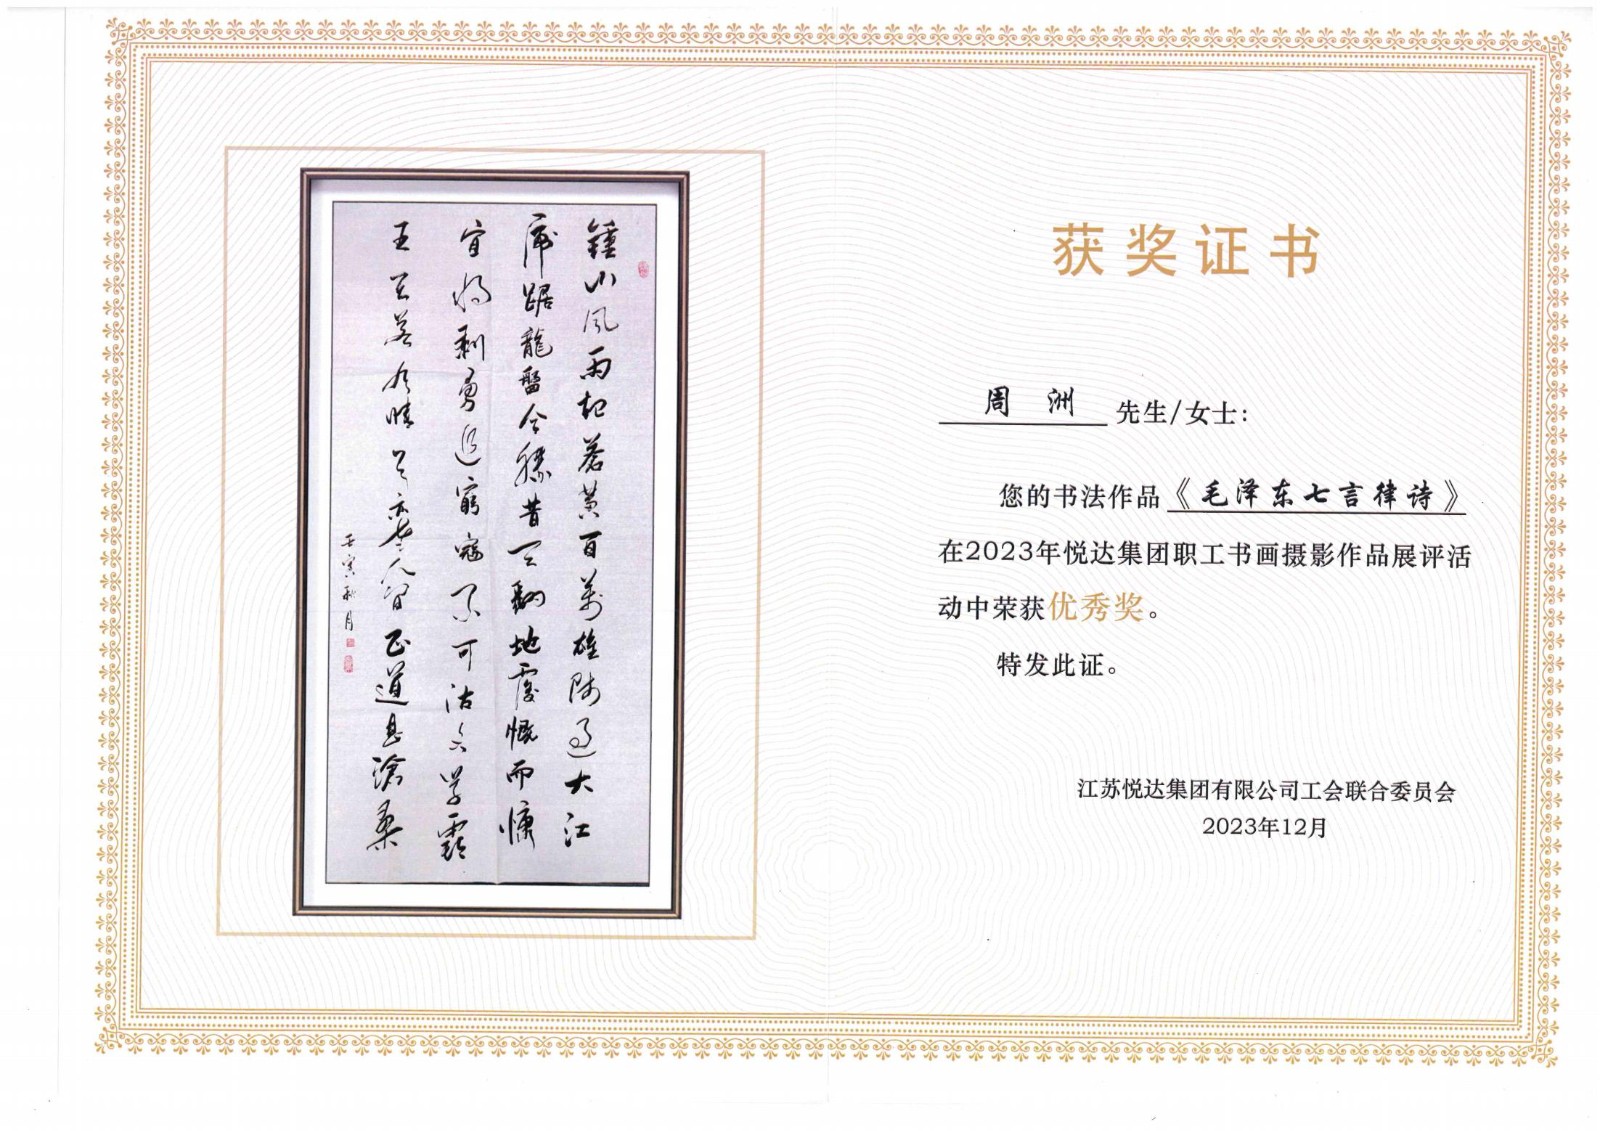 鍾山風雨起蒼黃百萬雄師過大江
虎踞龍盤今勝昔天翻地覆慨而慷
宜將剩勇追窮寇不可沽名學霸
王天若有情天亦老人間正道是滄桑
壬寅秋月
获奖证书
周 洲 先生/女士：
您的书法作品《毛泽东七言律诗》
在2023年悦达集团职工书画摄影作品展评活
动中荣获优秀奖。
特发此证。
江苏悦达集团有限公司工会联合委员会
2023年12月